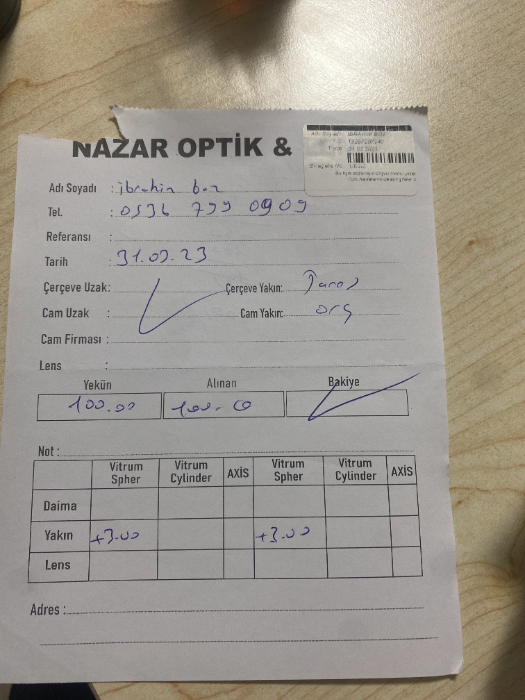 NAZAR OPTİK &
Adı Soyadı : ibrahim boz
Tel. : 0536 799 0909
Referansı :
Tarih : 31.03.23
Çerçeve Uzak: Çerçeve Yakın:
Cam Uzak : Cam Yakın: org
Cam Firması :
Lens :
Yekün Alınan Bakiye
100.00 100.00
Not :
Vitrum Spher Vitrum Cylinder AXİS Vitrum Spher Vitrum Cylinder AXİS
Daima
Yakın +3.00 +3.00
Lens
Adres :